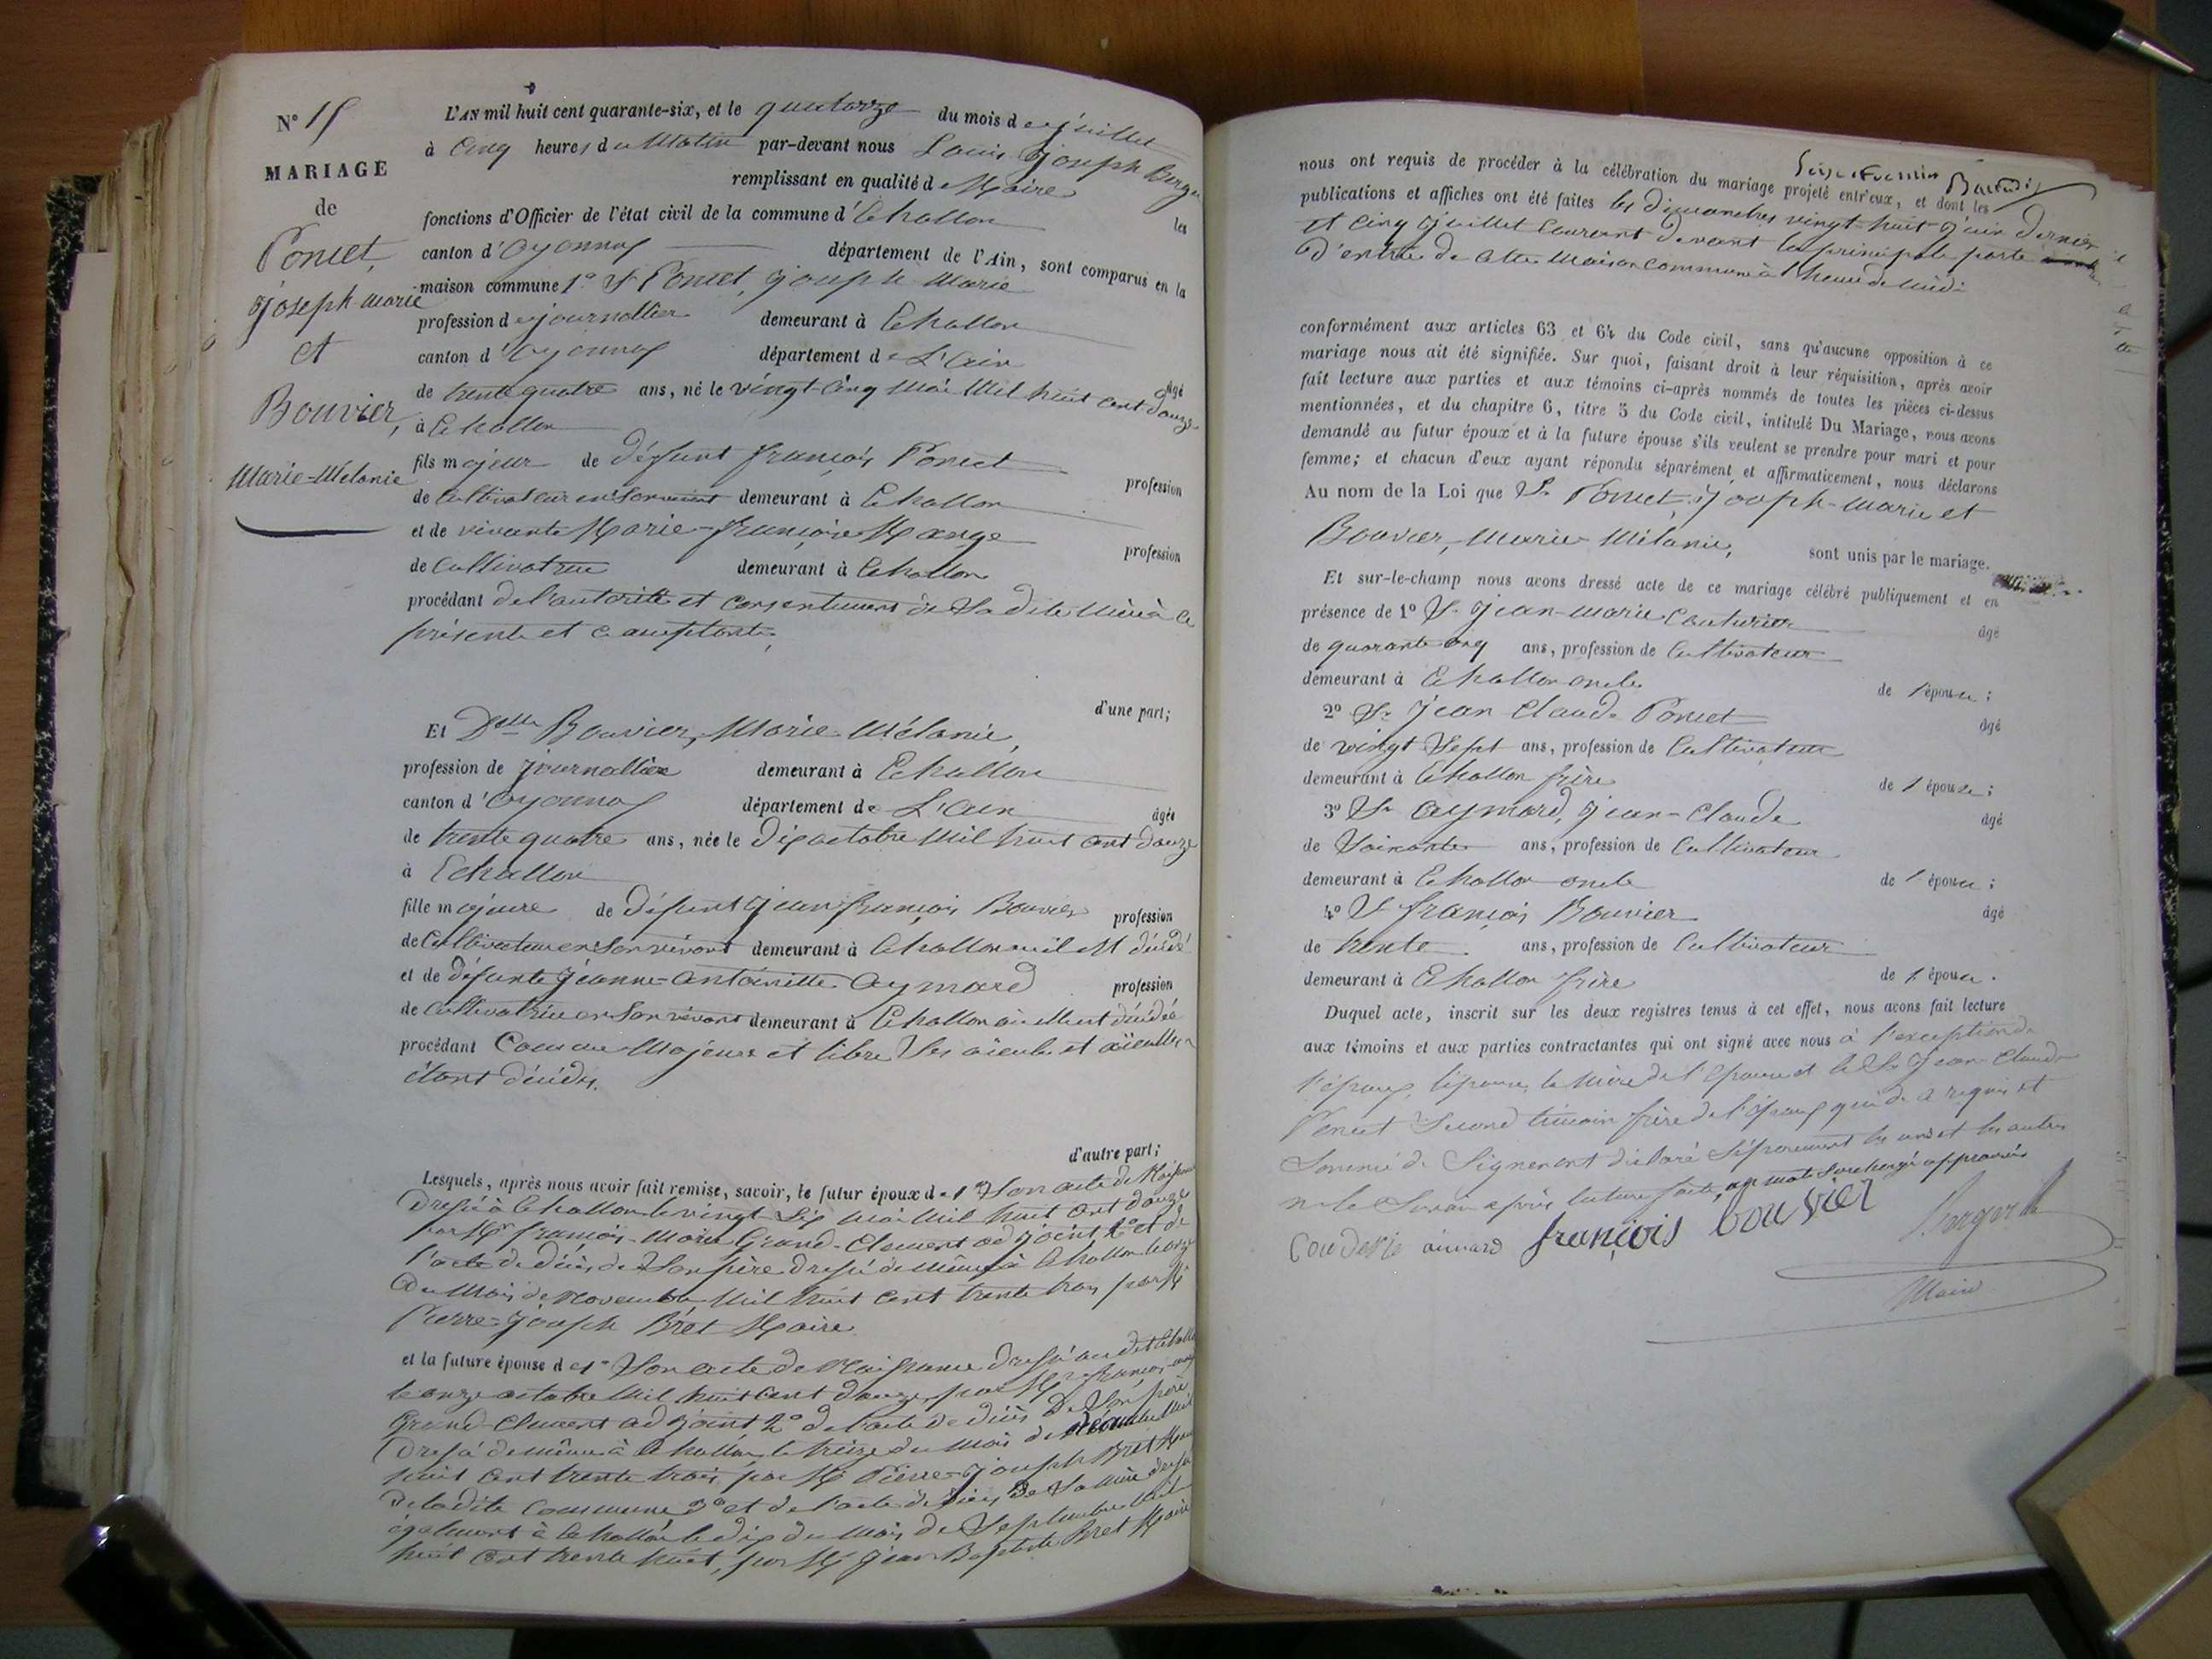 N° 15
MARIAGE
de
Poncet,
Joseph-marie
et
Bouvier,
Marie-Mélanie
L'AN mil huit cent quarante-six, et le quatorze du mois de juillet
à Cinq heures du Matin par-devant nous Louis Joseph Berger
remplissant en qualité de Maire les
fonctions d'Officier de l'état civil de la commune d'Echallon
canton d'Oyonnax département de l'Ain, sont comparus en la
maison commune 1° Sr Poncet, Joseph Marie
profession de journallier demeurant à Echallon
canton d'Oyonnax département de L'ain âgé
de trente quatre ans, né le vingt-cinq Mai Mil huit cent douze
à Echallon
fils majeur de défunt françois Poncet profession
de Cultivateur en son vivant demeurant à Echallon
et de vivante Marie-françoise Mange profession
de Cultivatrice demeurant à Echallon
procédant de l'autorité et consentement de Sa dite Mère à ce
présente et acceptante,
d'une part;
Et Delle Bouvier, Marie-Mélanie,
profession de journallière demeurant à Echallon
canton d'Oyonnax département de L'ain âgée
de trente quatre ans, née le dix octobre Mil huit cent douze
à Echallon
fille majeure de défunt jean françois Bouvier profession
de Cultivateur en son vivant demeurant à Echallon où il est décédé
et de défunte Jeanne-antoinette Aymard profession
de Cultivatrice en son vivant demeurant à Echallon où elle est décédée
procédant Comme Majeure et libre Ses aïeuls et aïeulles
étant décédés.
d'autre part;
Lesquels, après nous avoir fait remise, savoir, le futur époux de 1° Son acte de Naissance
Dressé à Echallon le vingt Six Mai Mil huit cent douze
par Mr françois-Marie Grand-Clement adjoint 2° et de
l'acte de décès de Son père dressé de même à Echallon le onze
du Mois de Novembre Mil huit cent trente trois par Mr
Pierre-Joseph Bret Maire
et la future épouse de 1° Son acte de Naissance dressé au dit Echallon
le onze octobre Mil huit cent douze par Mr françois-marie
Grand-Clement adjoint 2° de l'acte de décès De Son père
Dressé de même à Echallon le treize du Mois de décembre Mil
huit cent trente trois par Mr Pierre-Joseph Bret Maire
de la dite Commune 3° et de l'acte de décès De Sa Mère dressé
également à Echallon le dix du Mois de Septembre Mil
huit cent trente huit, par Mr Jean Baptiste Bret Maire
nous ont requis de procéder à la célébration du mariage projeté entr'eux, et dont les
publications et affiches ont été faites les dimanches vingt-huit Juin dernier
et cinq Juillet Courant devant la principale porte
d'entrée de cette Maison commune à l'heure de Midi
conformément aux articles 63 et 64 du Code civil, sans qu'aucune opposition à ce
mariage nous ait été signifiée. Sur quoi, faisant droit à leur réquisition, après avoir
fait lecture aux parties et aux témoins ci-après nommés de toutes les pièces ci-dessus
mentionnées, et du chapitre 6, titre 5 du Code civil, intitulé Du Mariage, nous avons
demandé au futur époux et à la future épouse s'ils veulent se prendre pour mari et pour
femme; et chacun d'eux ayant répondu séparément et affirmativement, nous déclarons
Au nom de la Loi que Sr Poncet, Joseph-Marie et
Bouvier, Marie-Mélanie, sont unis par le mariage.
Et sur-le-champ nous avons dressé acte de ce mariage célébré publiquement et en
présence de 1° Sr Jean-marie Couturier âgé
de quarante cinq ans, profession de Cultivateur
demeurant à Echallon oncle de l'épouse;
2° Sr Jean Claude Poncet âgé
de vingt Sept ans, profession de Cultivateur
demeurant à Echallon frère de l'époux;
3° Sr Aymard, Jean-Claude âgé
de Soixante ans, profession de Cultivateur
demeurant à Echallon oncle de l'épouse;
4° Sr françois Bouvier âgé
de trente ans, profession de Cultivateur
demeurant à Echallon frère de l'épouse.
Duquel acte, inscrit sur les deux registres tenus à cet effet, nous avons fait lecture
aux témoins et aux parties contractantes qui ont signé avec nous à l'exception de
l'époux, l'épouse, la Mère de l'époux et le Sr Jean-Claude
Poncet Second témoin frère de l'époux qui de ce requis et
Sommé de Signer ont déclaré Séparément les uns et les autres
ne le Savoir après lecture faite, un mot surchargé approuvé
aimard françois bouvier Berger
Maire